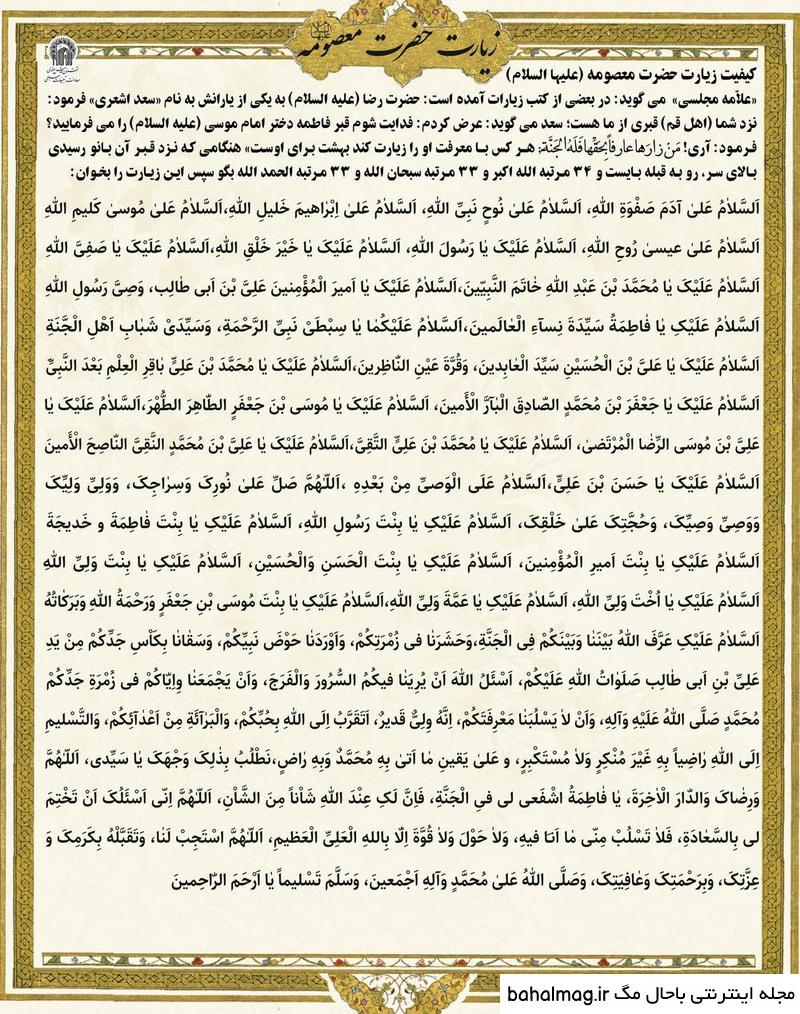 زیارت حضرت معصومه
کیفیت زیارت حضرت معصومه (علیها السلام)
«علاّمه مجلسی» می گوید: در بعضی از کتب زیارات آمده است: حضرت رضا (علیه السلام) به یکی از یارانش به نام «سعد اشعری» فرمود:
نزد شما (اهل قم) قبری از ما هست؛ سعد می گوید: عرض کردم: فدایت شوم قبر فاطمه دختر امام موسی (علیه السلام) را می فرمایید؟
فرمود: آری! مَنْ زارَها عارِفاً بِحَقِّها فَلَهُ الْجَنَّةُ؛ هر کس با معرفت او را زیارت کند بهشت برای اوست» هنگامی که نزد قبر آن بانو رسیدی
بالای سر، رو به قبله بایست و ۳۴ مرتبه الله اکبر و ۳۳ مرتبه سبحان الله و ۳۳ مرتبه الحمد الله بگو سپس این زیارت را بخوان:
اَلسَّلاٰمُ عَلیٰ آدَمَ صَفْوَةِ اللهِ، اَلسَّلاٰمُ عَلیٰ نُوحٍ نَبِیِّ اللهِ، اَلسَّلاٰمُ عَلیٰ اِبْرٰاهیمَ خَلیلِ اللهِ،اَلسَّلاٰمُ عَلیٰ مُوسیٰ کَلیمِ اللهِ
اَلسَّلاٰمُ عَلیٰ عیسیٰ رُوحِ اللهِ، اَلسَّلاٰمُ عَلَیْکَ یٰا رَسُولَ اللهِ، اَلسَّلاٰمُ عَلَیْکَ یٰا خَیْرَ خَلْقِ اللهِ،اَلسَّلاٰمُ عَلَیْکَ یٰا صَفِیَّ اللهِ
اَلسَّلاٰمُ عَلَیْکَ یٰا مُحَمَّدَ بْنَ عَبْدِ اللهِ خٰاتَمَ النَّبِیّینَ،اَلسَّلاٰمُ عَلَیْکَ یٰا اَمیرَ الْمُؤْمِنینَ عَلِیَّ بْنَ اَبی طٰالِب، وَصِیَّ رَسُولِ اللهِ
اَلسَّلاٰمُ عَلَیْکِ یٰا فٰاطِمَةُ سَیِّدَةَ نِسآءِ الْعٰالَمینَ،اَلسَّلاٰمُ عَلَیْکُمٰا یٰا سِبْطَیْ نَبِیِّ الرَّحْمَةِ، وَسَیِّدَیْ شَبٰابِ اَهْلِ الْجَنَّةِ
اَلسَّلاٰمُ عَلَیْکَ یٰا عَلِیَّ بْنَ الْحُسَیْنِ سَیِّدَ الْعٰابِدینَ، وَقُرَّةَ عَیْنِ النّٰاظِرینَ،اَلسَّلاٰمُ عَلَیْکَ یٰا مُحَمَّدَ بْنَ عَلِیٍّ بٰاقِرَ الْعِلْمِ بَعْدَ النَّبِیِّ
اَلسَّلاٰمُ عَلَیْکَ یٰا جَعْفَرَ بْنَ مُحَمَّدٍ الصّٰادِقَ الْبٰآرَّ الْأَمینَ، اَلسَّلاٰمُ عَلَیْکَ یٰا مُوسَی بْنَ جَعْفَرٍ الطّٰاهِرَ الطُّهْرَ،اَلسَّلاٰمُ عَلَیْکَ یٰا
عَلِیَّ بْنَ مُوسَی الرِّضَا الْمُرْتَضیٰ، اَلسَّلاٰمُ عَلَیْکَ یٰا مُحَمَّدَ بْنَ عَلِیٍّ التَّقِیَّ،اَلسَّلاٰمُ عَلَیْکَ یٰا عَلِیَّ بْنَ مُحَمَّدٍ النَّقِیَّ النّٰاصِحَ الْأَمینَ
اَلسَّلاٰمُ عَلَیْکَ یٰا حَسَنَ بْنَ عَلِیٍّ،اَلسَّلاٰمُ عَلَی الْوَصِیِّ مِنْ بَعْدِهِ ،اَللّٰهُمَّ صَلِّ عَلیٰ نُورِکَ وَسِرٰاجِکَ، وَوَلِیِّ وَلِیِّکَ
وَوَصِیِّ وَصِیِّکَ، وَحُجَّتِکَ عَلیٰ خَلْقِکَ، اَلسَّلاٰمُ عَلَیْکِ یٰا بِنْتَ رَسُولِ اللهِ، اَلسَّلاٰمُ عَلَیْکِ یٰا بِنْتَ فٰاطِمَةَ و خَدیجَةَ
اَلسَّلاٰمُ عَلَیْکِ یٰا بِنْتَ اَمیرِ الْمُؤْمِنینَ، اَلسَّلاٰمُ عَلَیْکِ یٰا بِنْتَ الْحَسَنِ وَالْحُسَیْنِ، اَلسَّلاٰمُ عَلَیْکِ یٰا بِنْتَ وَلِیِّ اللهِ
اَلسَّلاٰمُ عَلَیْکِ یٰا اُخْتَ وَلِیِّ اللهِ، اَلسَّلاٰمُ عَلَیْکِ یٰا عَمَّةَ وَلِیِّ اللهِ،اَلسَّلاٰمُ عَلَیْکِ یٰا بِنْتَ مُوسَی بْنِ جَعْفَرٍ وَرَحْمَةُ اللهِ وَبَرَکٰاتُهُ
اَلسَّلاٰمُ عَلَیْکِ عَرَّفَ اللهُ بَیْنَنٰا وَبَیْنَکُمْ فِی الْجَنَّةِ،وَحَشَرَنٰا فی زُمْرَتِکُمْ، وَاَوْرَدَنٰا حَوْضَ نَبِیِّکُمْ، وَسَقٰانٰا بِکَاْسِ جَدِّکُمْ مِنْ یَدِ
عَلِیِّ بْنِ اَبی طٰالِب صَلَوٰاتُ اللهِ عَلَیْکُمْ، اَسْئَلُ اللهَ اَنْ یُرِیَنٰا فیکُمُ السُّرُورَ وَالْفَرَجَ، وَاَنْ یَجْمَعَنٰا وَاِیّٰاکُمْ فی زُمْرَةِ جَدِّکُمْ
مُحَمَّدٍ صَلَّی اللهُ عَلَیْهِ وَآلِهِ، وَاَنْ لاٰ یَسْلُبَنٰا مَعْرِفَتَکُمْ، اِنَّهُ وَلِیٌّ قَدیرٌ، اَتَقَرَّبُ اِلَی اللهِ بِحُبِّکُمْ، وَالْبَرٰآئَةِ مِنْ اَعْدٰآئِکُمْ، وَالتَّسْلیمِ
اِلَی اللهِ رٰاضِیاً بِهِ غَیْرَ مُنْکِرٍ وَلاٰ مُسْتَکْبِرٍ، و عَلیٰ یَقینِ مٰا اَتیٰ بِهِ مُحَمَّدٌ وَبِهِ رٰاضٍ،نَطْلُبُ بِذٰلِکَ وَجْهَکَ یٰا سَیِّدی، اَللّٰهُمَّ
وَرِضٰاکَ وَالدّٰارَ الْاٰخِرَةَ، یٰا فٰاطِمَةُ اشْفَعی لی فِی الْجَنَّةِ، فَاِنَّ لَکِ عِنْدَ اللهِ شَاْناً مِنَ الشَّاْنِ، اَللّٰهُمَّ اِنّی اَسْئَلُکَ اَنْ تَخْتِمَ
لی بِالسَّعٰادَةِ، فَلاٰ تَسْلُبْ مِنّی مٰا اَنَا فیهِ، وَلاٰ حَوْلَ وَلاٰ قُوَّةَ اِلّا بِاللهِ الْعَلِیِّ الْعَظیمِ، اَللّٰهُمَّ اسْتَجِبْ لَنٰا، وَتَقَبَّلْهُ بِکَرَمِکَ وَ
عِزَّتِکَ، وَبِرَحْمَتِکَ وَعٰافِیَتِکَ، وَصَلَّی اللهُ عَلیٰ مُحَمَّدٍ وَآلِهِ اَجْمَعینَ، وَسَلَّمَ تَسْلیماً یٰا اَرْحَمَ الرّٰاحِمینَ
مجله اینترنتی باحال مگ bahalmag.ir